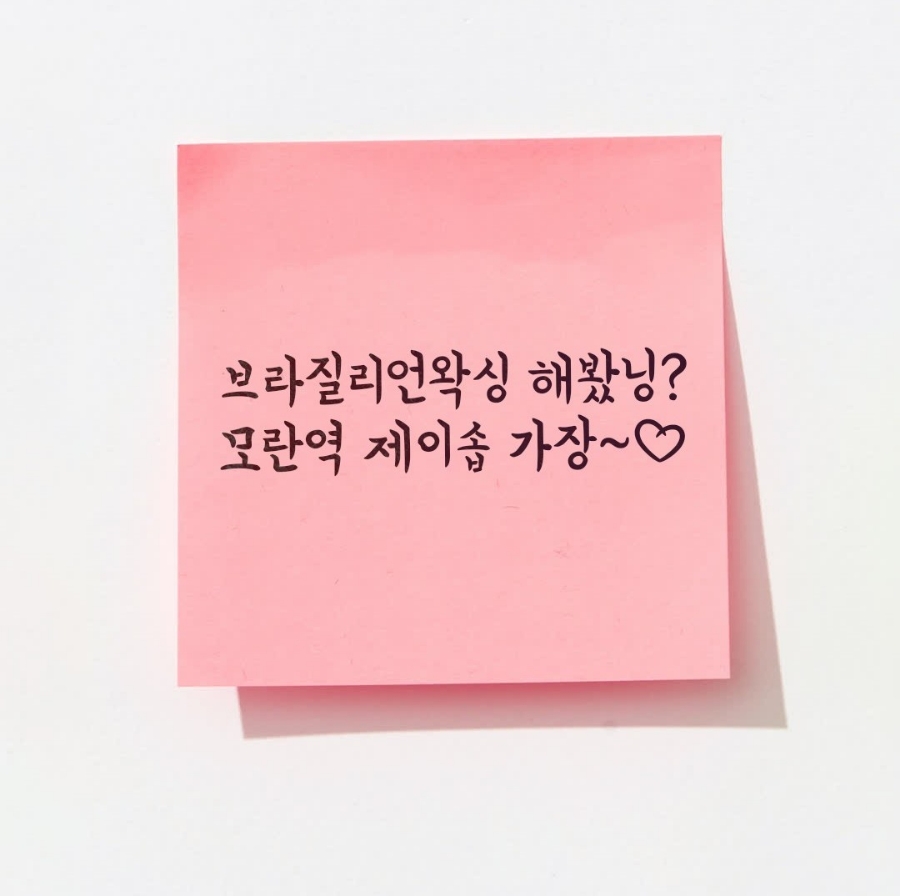 브라질리언왁싱 해봤닝?
모란역 제이솝 가장~♡